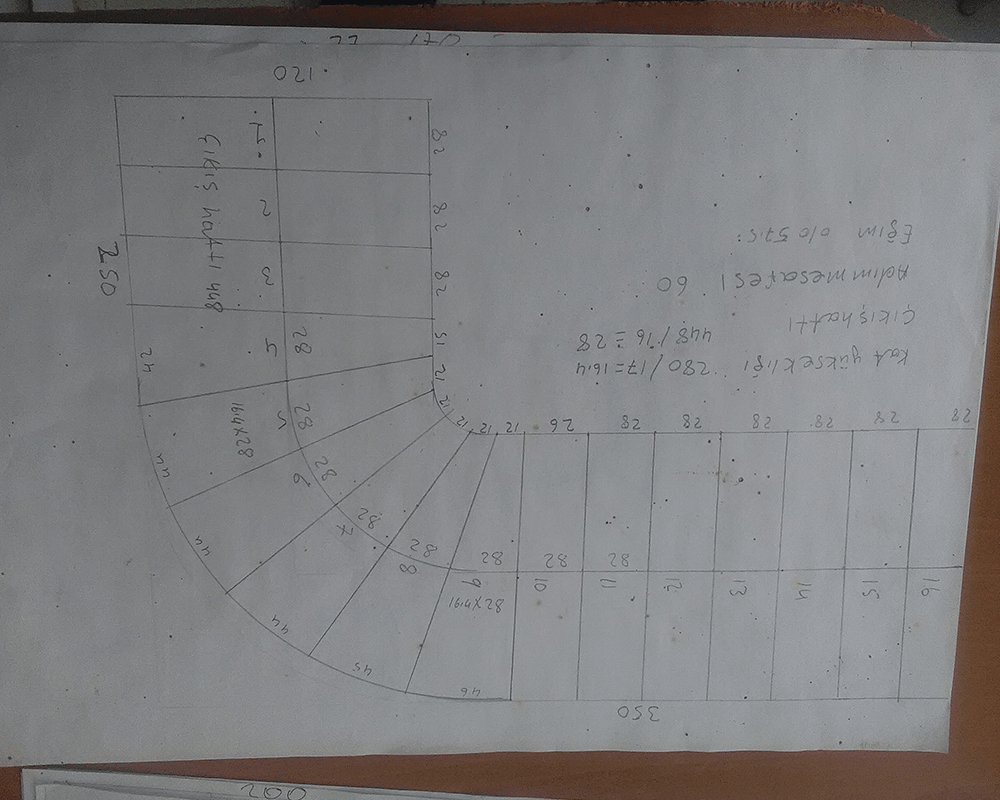 Kat yüksekliği 280/17=16.4
Çıkış hattı 448/16=28
Adım mesafesi 60
Eğim %57.5:
350
16
15
14
13
12
11
10
9
8
7
6
5
3
2
1
28
28
28
28
28
28
26
12
12
12
12
12
15
28
28
28
28
28
28
28
28
28
28
28
16.4x28
16.4x28
46
45
44
44
44
42
Çıkış hattı 448
250
120
200